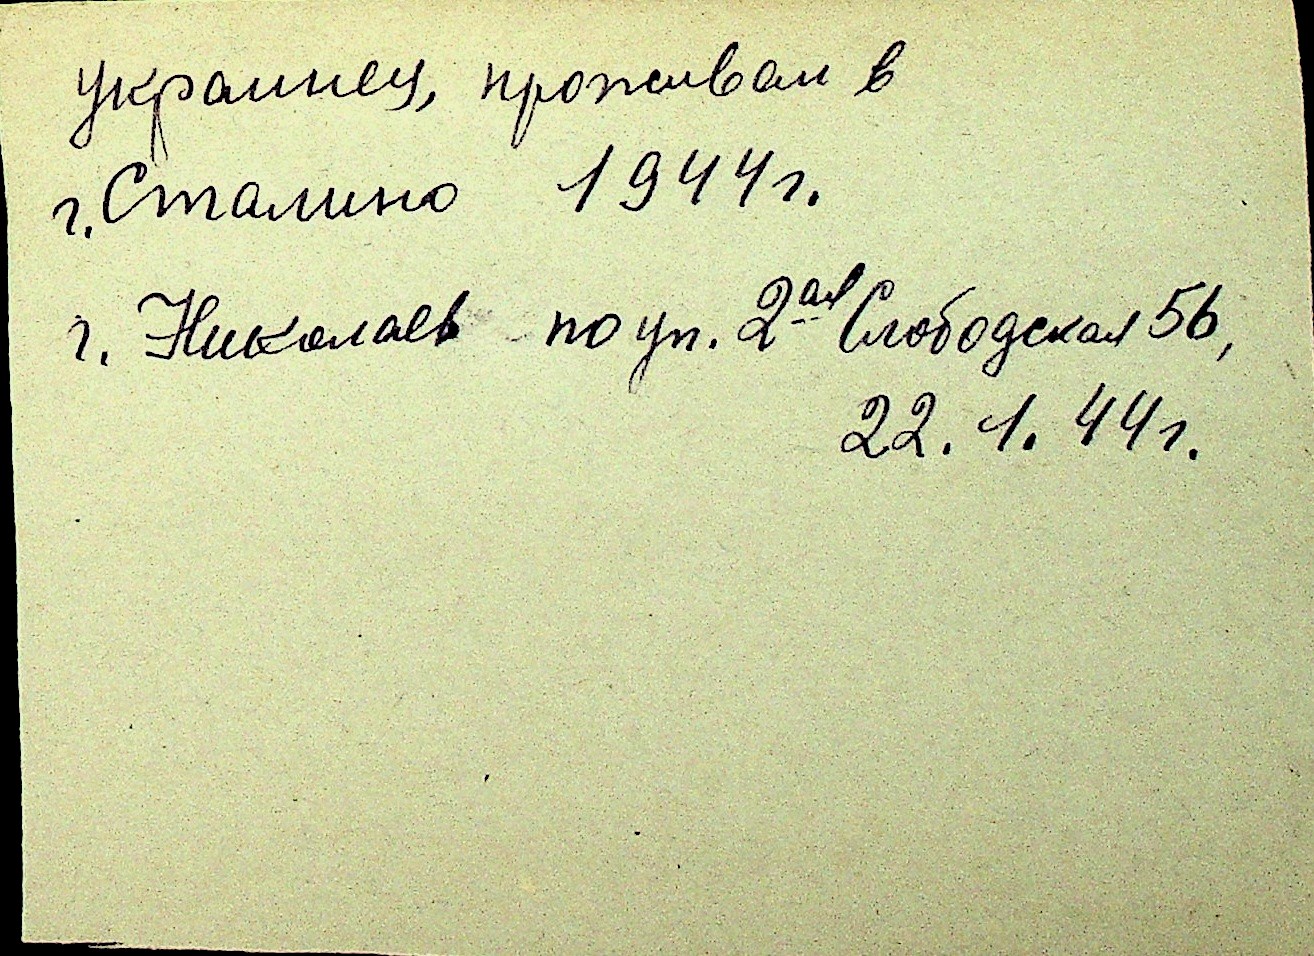 украинец, проживал в
г. Сталино 1944 г.
г. Николаев по ул. 2ая Слободская 56,
22. 1. 44 г.